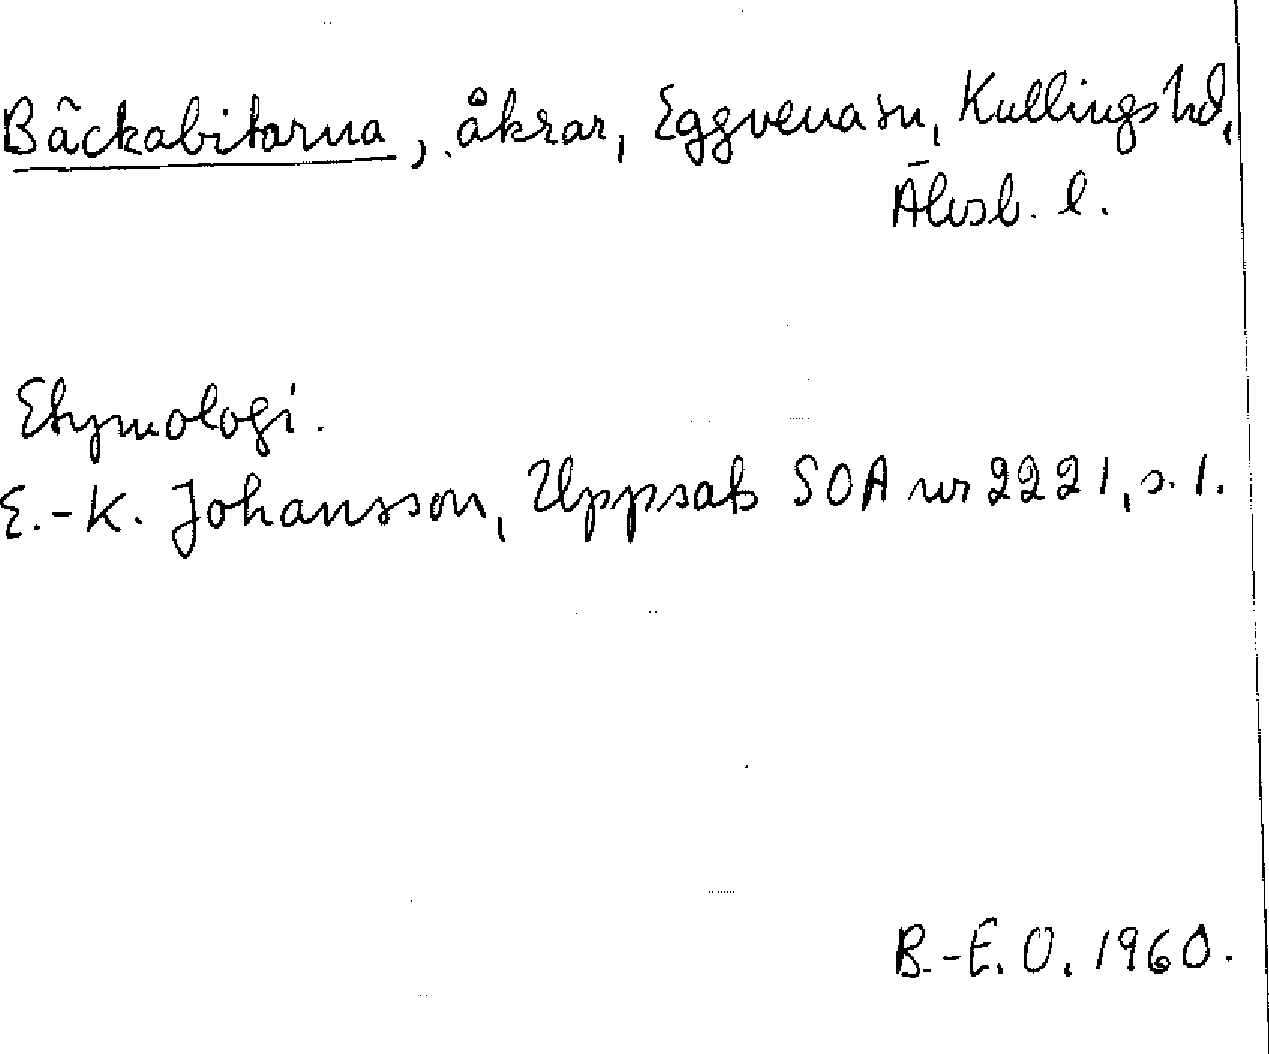 Bäckabitarna, åkrar, Eggvena sn, Kullings hd,
Älvsb. l.
Etymologi.
E.-K. Johansson, Uppsats SOA nr 2221, s. 1.
B.-E. O. 1960.